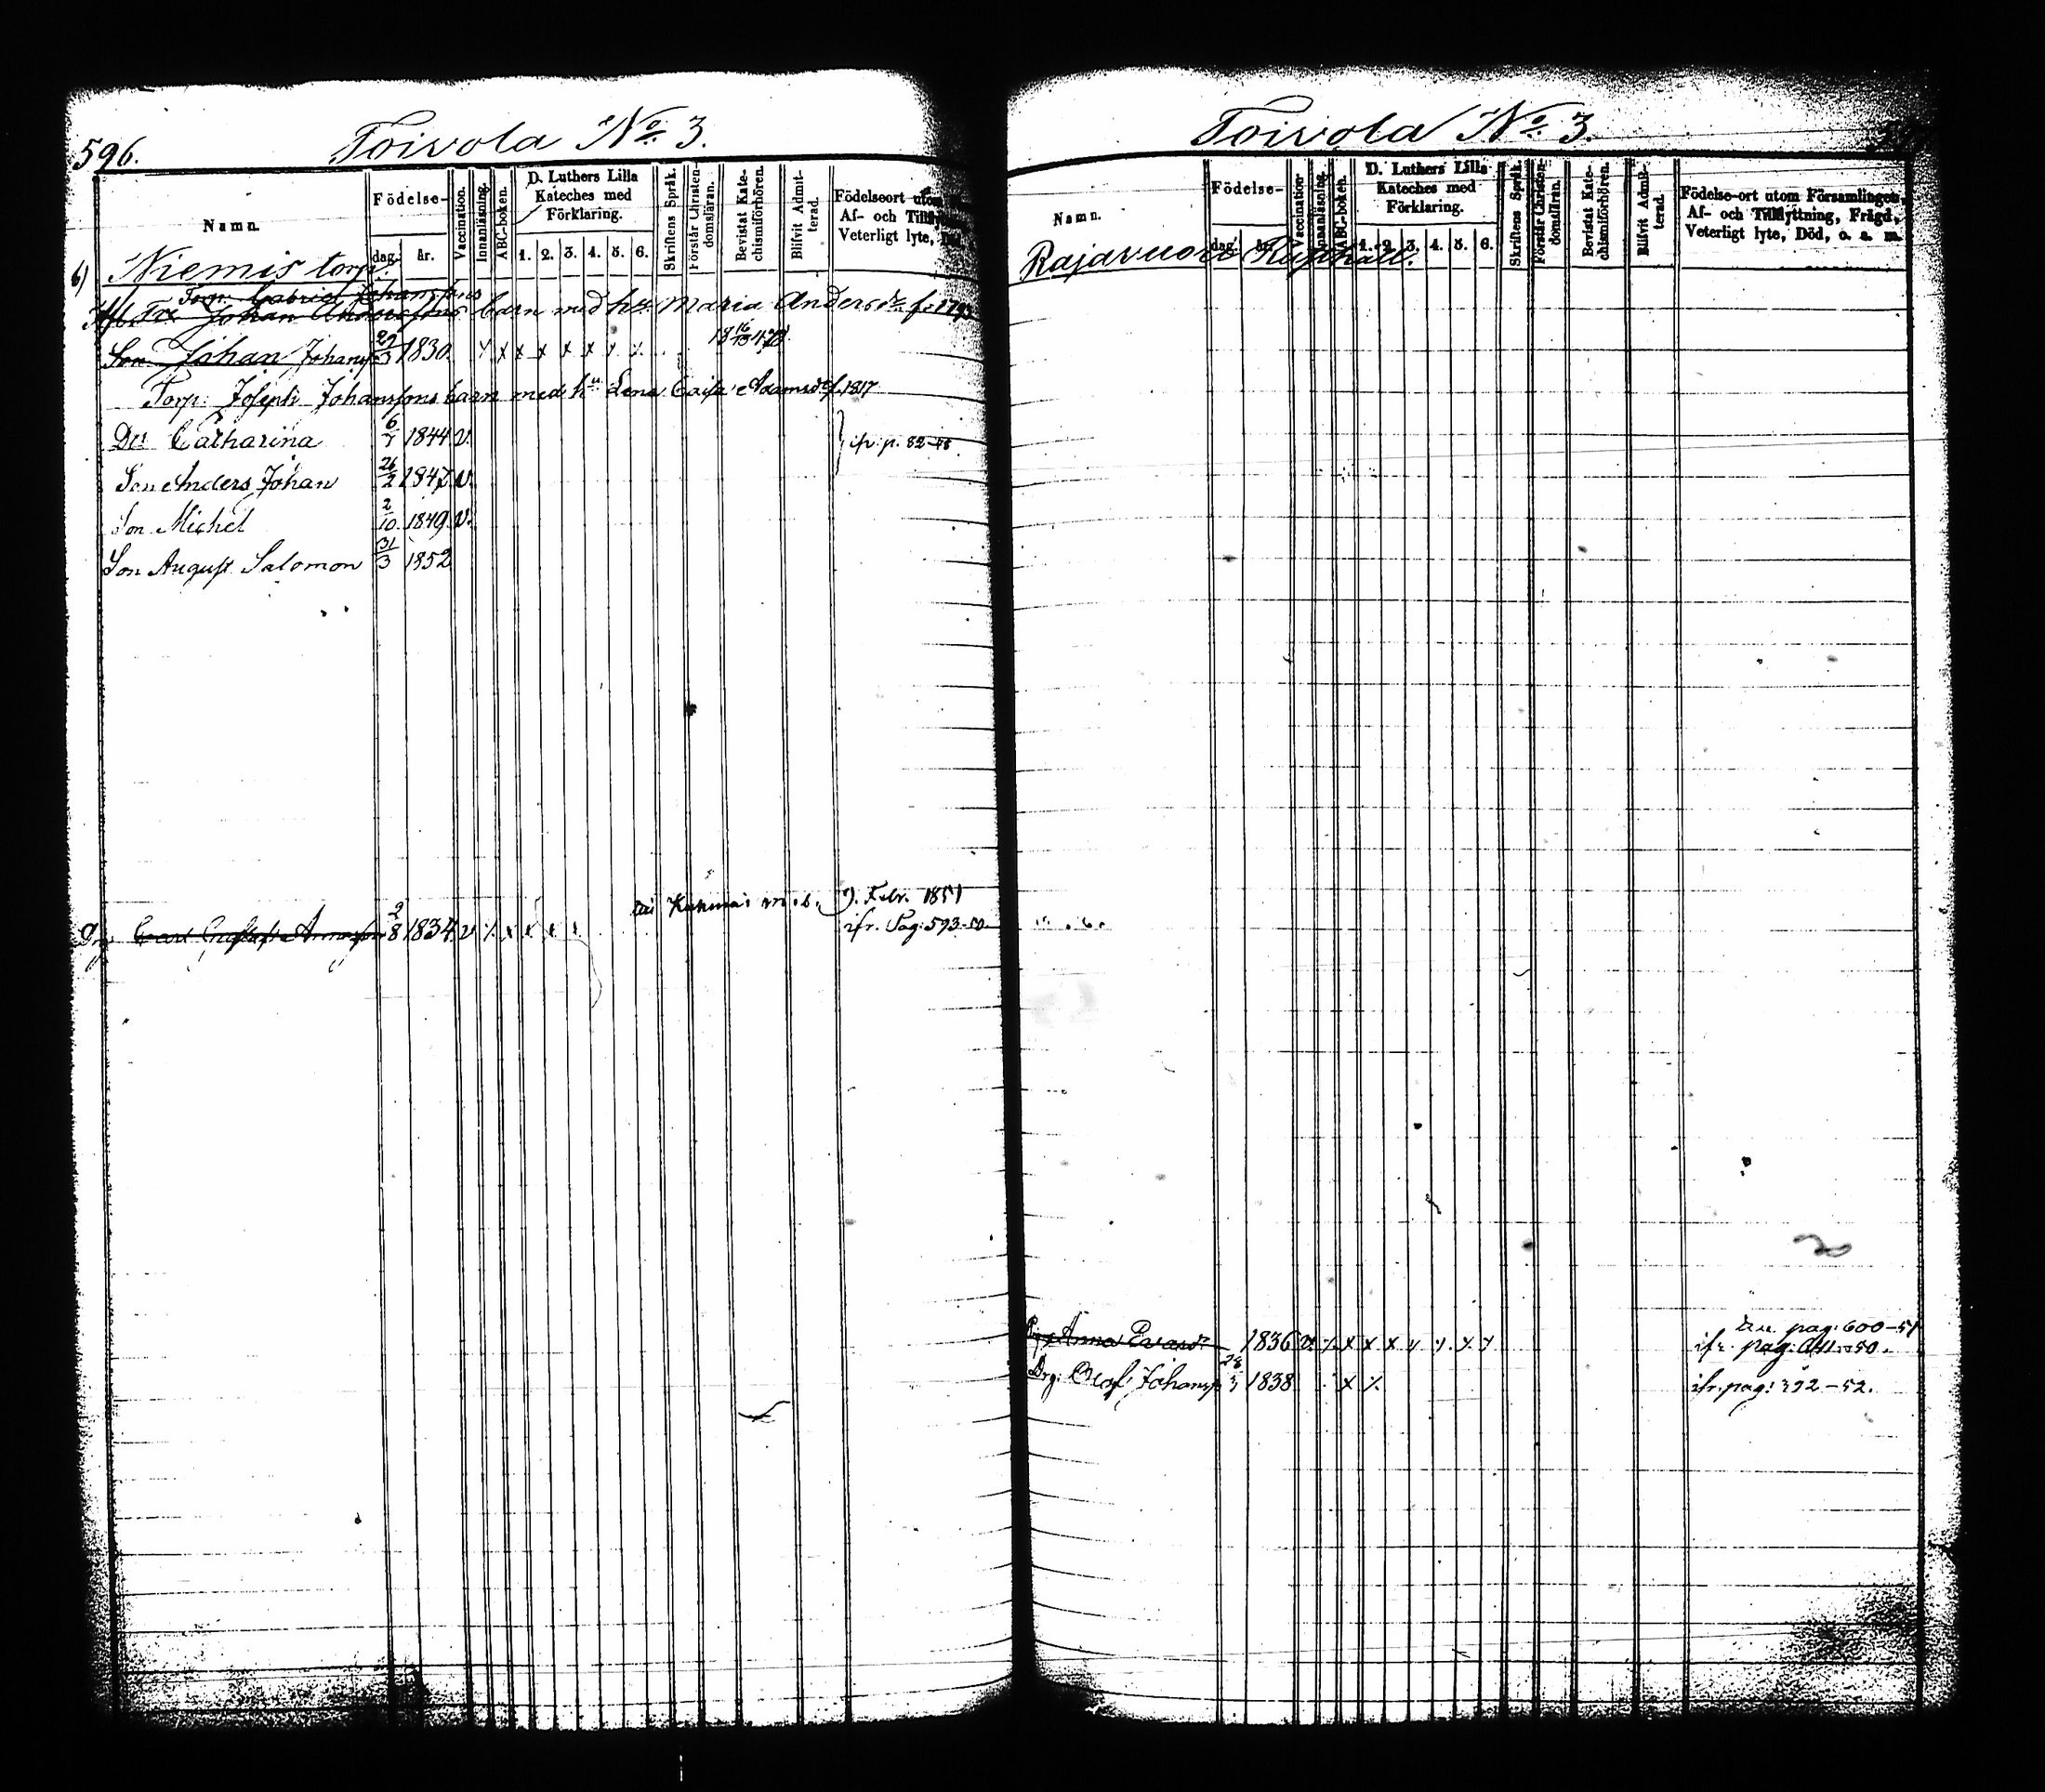 596.
Toivola No 3.
Namn.
Födelse-
dag.
år.
Vaccination.
Innanläsning.
ABC-boken.
D. Luthers Lilla
Kateches med
Förklaring.
1. 2. 3. 4. 5. 6.
Skriftens Språk.
Förstår Christen-
domsläran.
Bevistat Kate-
chismiförhören.
Blifvit Admit-
terad.
Födelseort utom
Af- och
Veterligt lyte,
Niemis torp.
Torp. Gabriel Johanssons
Johan Anderssons barn med hu Maria Andersdr f. 1793
Son Johan Johanss 1830 x x x x x
Torp. Joseph Johanssons barn med hu Lena Caisa Adamsdr f. 1817
Dr Catharina 6/7 1844 v. ifr. p. 82-48
Son Anders Johan 26/2 1847 v.
Son Michel 2/10 1849 v.
Son August Salomon 31/3 1852
9. Febr. 1851
Carl 2/8 1834 v x x x ifr. Pag: 593-50.
Toivola No 3.
Namn.
Födelse-
dag.
år.
Vaccination
Innanläsning.
ABC-boken.
D. Luthers Lilla
Kateches med
Förklaring.
1. 2. 3. 4. 5. 6.
Skriftens Språk.
Förstår Christen-
domsläran.
Bevistat Kate-
chismiförhören.
Blifvit Admit-
terad.
Födelse-ort utom Församlingen,
Af- och Tillflyttning, Frägd,
Veterligt lyte, Död, o. s. m.
Rajavuori
pag: 600-51
Anna 1836 v. x x x x ifr. pag:
Drg: Olof Johanss 1838 x ifr. pag: 392-52.